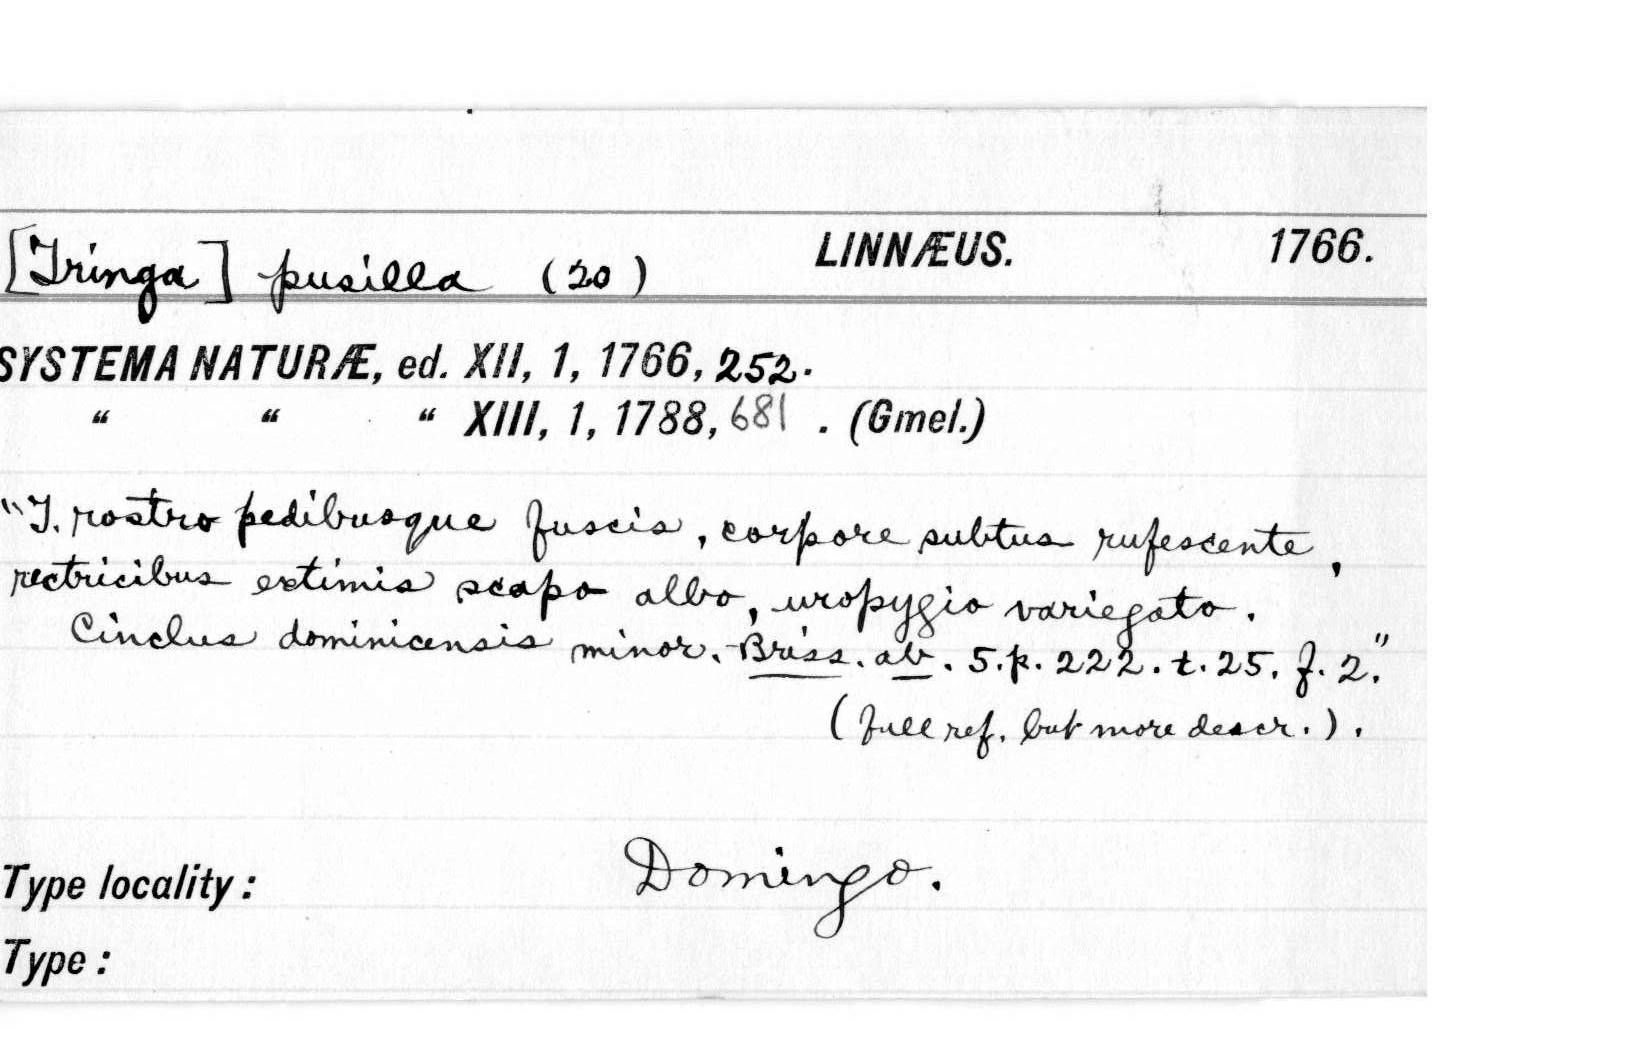 [Tringa] pusilla (20) LINNÆUS. 1766.
SYSTEMA NATURÆ, ed. XII, 1, 1766, 252.
“ “ “ XIII, 1, 1788, 681 . (Gmel.)
"T. rostro pedibusque fuscis, corpore subtus rufescente,
rectricibus extimis scapo albo, uropygio variegato.
Cinclus dominicensis minor. Briss. av. 5. p. 222. t. 25. f. 2."
(full ref. but more descr.).
Type locality: Domingo.
Type: